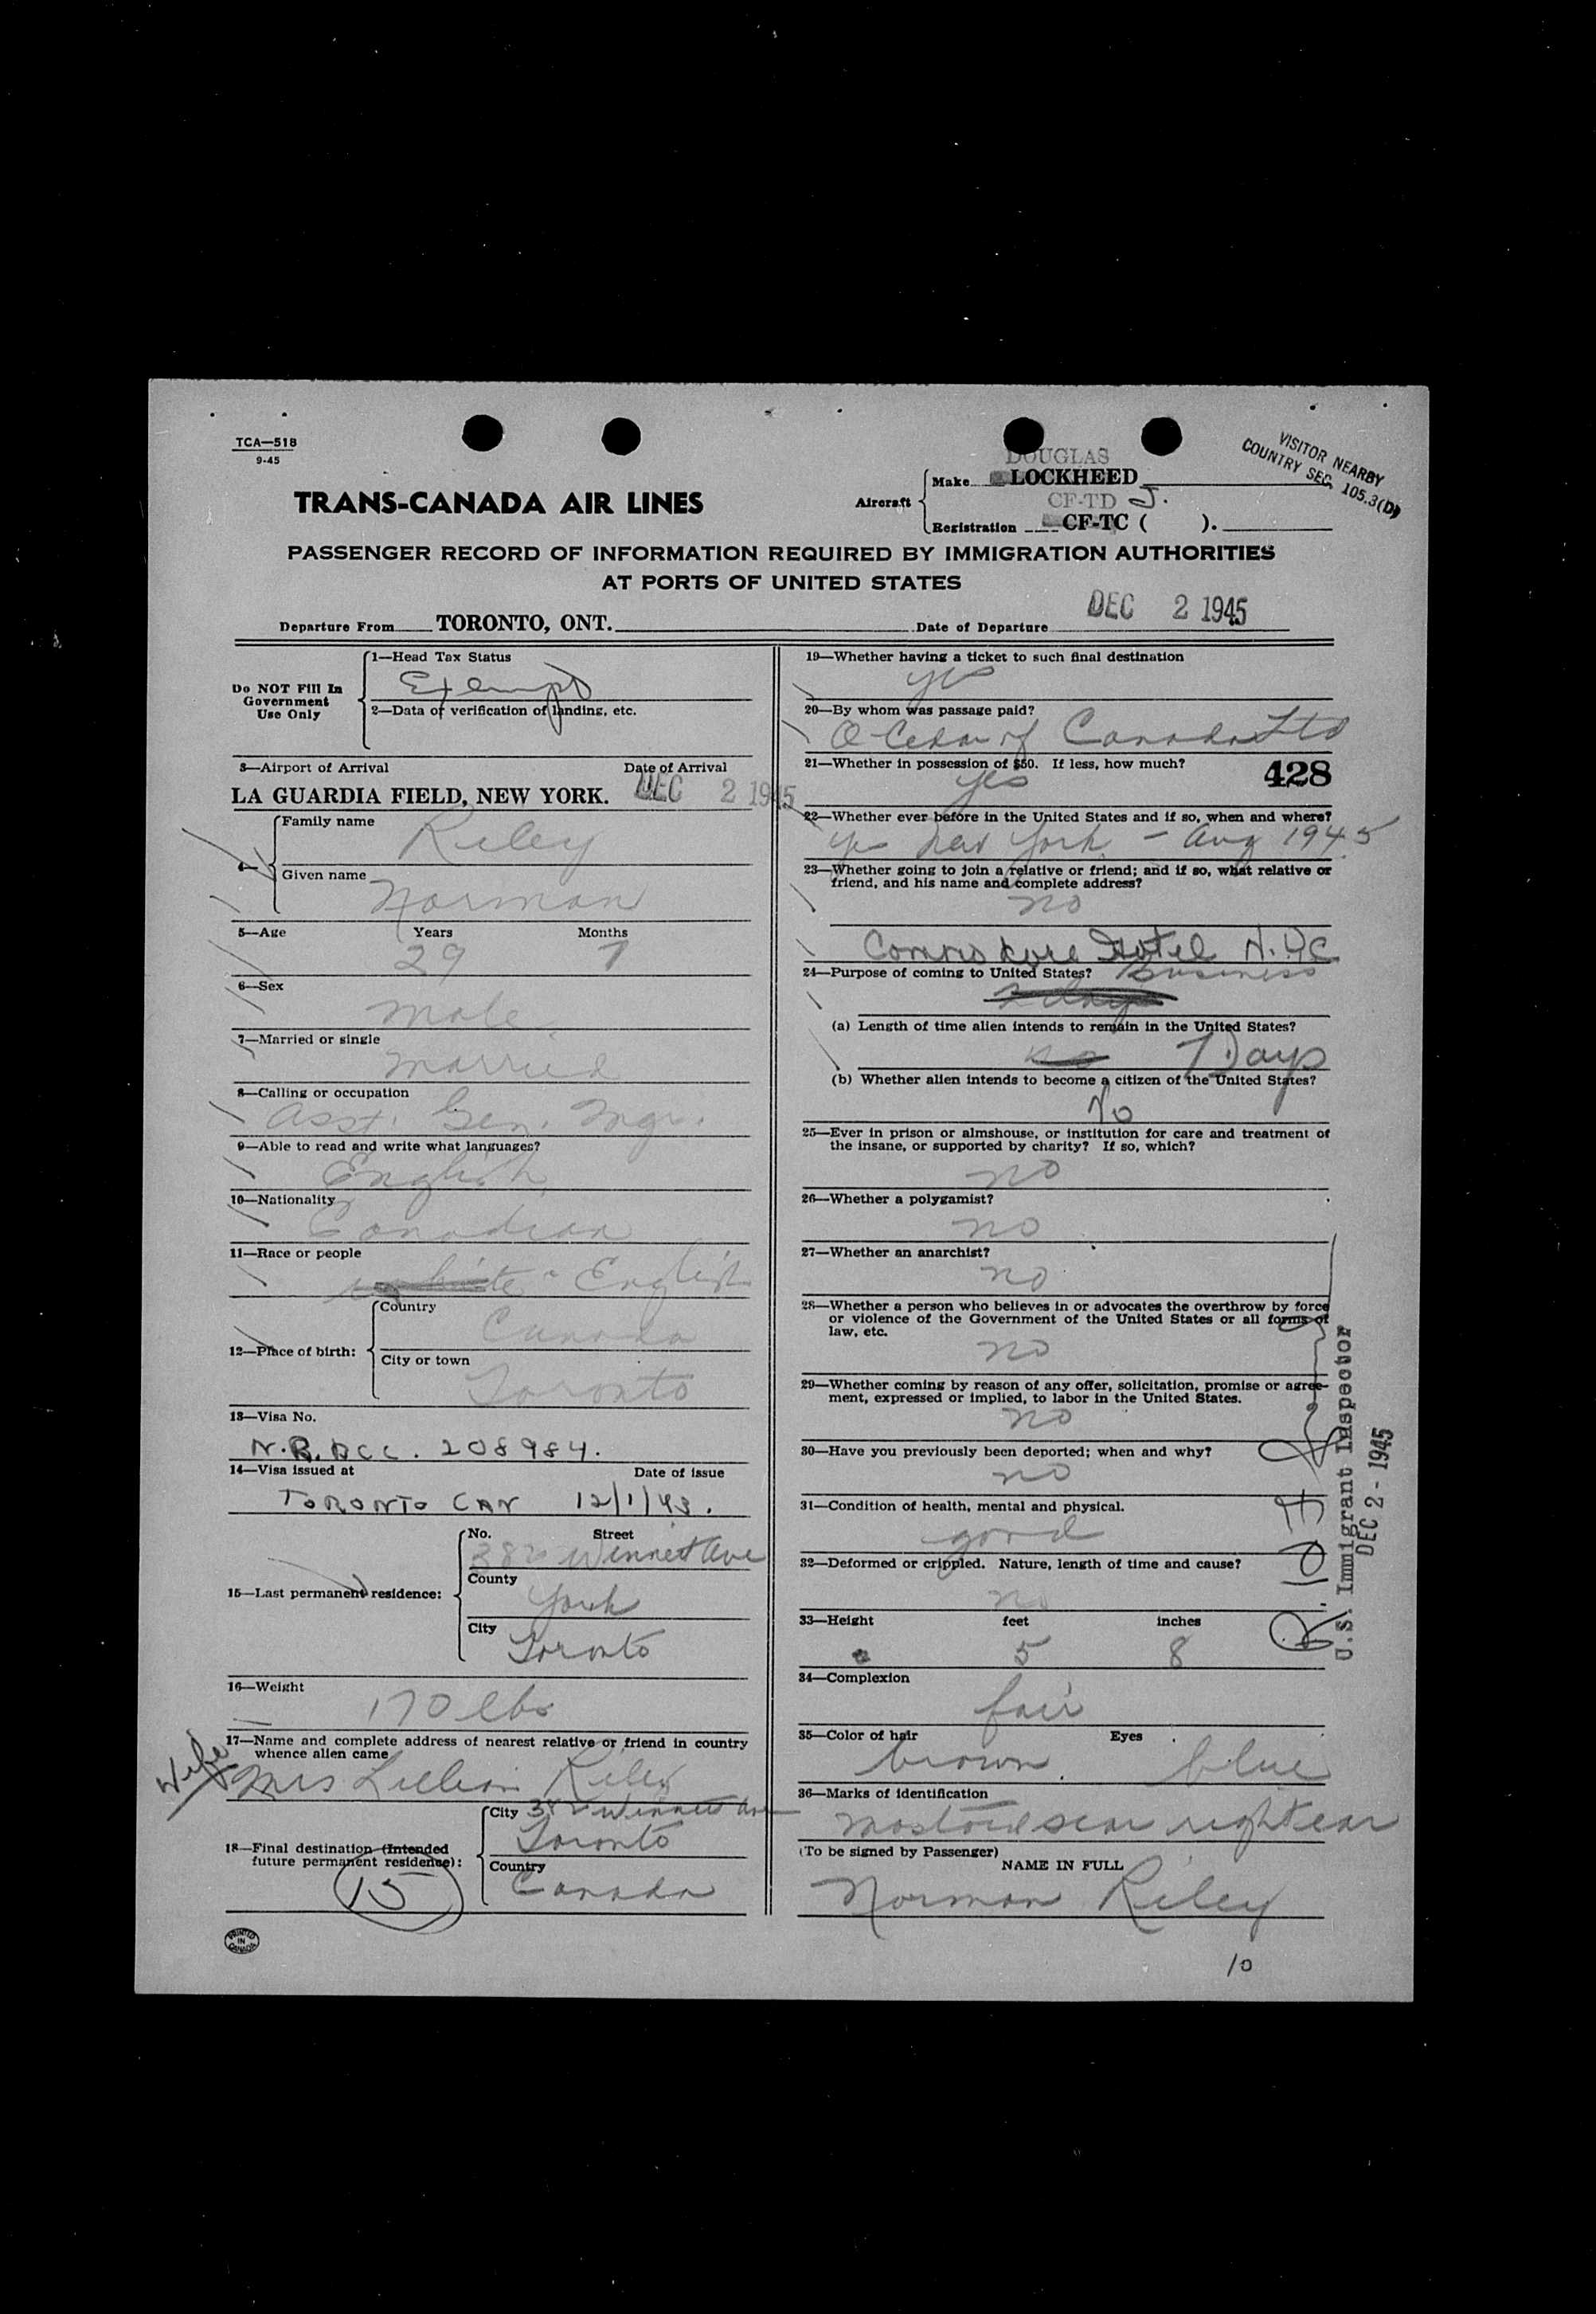 TCA—518
9-45
VISITOR NEARBY
COUNTRY SEC. 105.3(D)
DOUGLAS
Make LOCKHEED
TRANS-CANADA AIR LINES
Aircraft
CF-TD J.
Registration CF-TC ( ).
PASSENGER RECORD OF INFORMATION REQUIRED BY IMMIGRATION AUTHORITIES
AT PORTS OF UNITED STATES
Departure From TORONTO, ONT. Date of Departure DEC 2 1945
Do NOT Fill In
Government
Use Only
1—Head Tax Status
Exempt
2—Data of verification of landing, etc.
3—Airport of Arrival Date of Arrival
LA GUARDIA FIELD, NEW YORK. DEC 2 1945
4—
Family name
Riley
Given name
Norman
5—Age Years Months
29 7
6—Sex
Male
7—Married or single
Married
8—Calling or occupation
Asst. Gen. Mgr.
9—Able to read and write what languages?
English
10—Nationality
Canadian
11—Race or people
white English
12—Place of birth:
Country
Canada
City or town
Toronto
13—Visa No.
N.R. ACC. 208984.
14—Visa issued at Date of issue
TORONTO CAN 12/1/43.
15—Last permanent residence:
No. Street
382 Winnett Ave
County
York
City
Toronto
16—Weight
170 lbs
17—Name and complete address of nearest relative or friend in country
whence alien came
Wife
Mrs Lillian Riley
18—Final destination (Intended
future permanent residence):
15
City 382 Winnett Ave
Toronto
Country
Canada
PRINTED
IN
CANADA
19—Whether having a ticket to such final destination
yes
20—By whom was passage paid?
O-Cedar of Canada Ltd
21—Whether in possession of $50. If less, how much?
yes
428
22—Whether ever before in the United States and if so, when and where?
yes New York - Aug 1945
23—Whether going to join a relative or friend; and if so, what relative or
friend, and his name and complete address?
no
Commodore Hotel N.Y.C.
24—Purpose of coming to United States? Business
(a) Length of time alien intends to remain in the United States?
no 7 Days
(b) Whether alien intends to become a citizen of the United States?
No
25—Ever in prison or almshouse, or institution for care and treatment of
the insane, or supported by charity? If so, which?
no
26—Whether a polygamist?
no
27—Whether an anarchist?
no
28—Whether a person who believes in or advocates the overthrow by force
or violence of the Government of the United States or all forms of
law, etc.
no
29—Whether coming by reason of any offer, solicitation, promise or agree-
ment, expressed or implied, to labor in the United States.
no
30—Have you previously been deported; when and why?
no
31—Condition of health, mental and physical.
good
32—Deformed or crippled. Nature, length of time and cause?
no
33—Height feet inches
5 8
34—Complexion
fair
35—Color of hair Eyes
brown blue
36—Marks of identification
mastoid scar right ear
(To be signed by Passenger)
NAME IN FULL
Norman Riley
10
U.S. Immigrant Inspector
DEC 2 - 1945